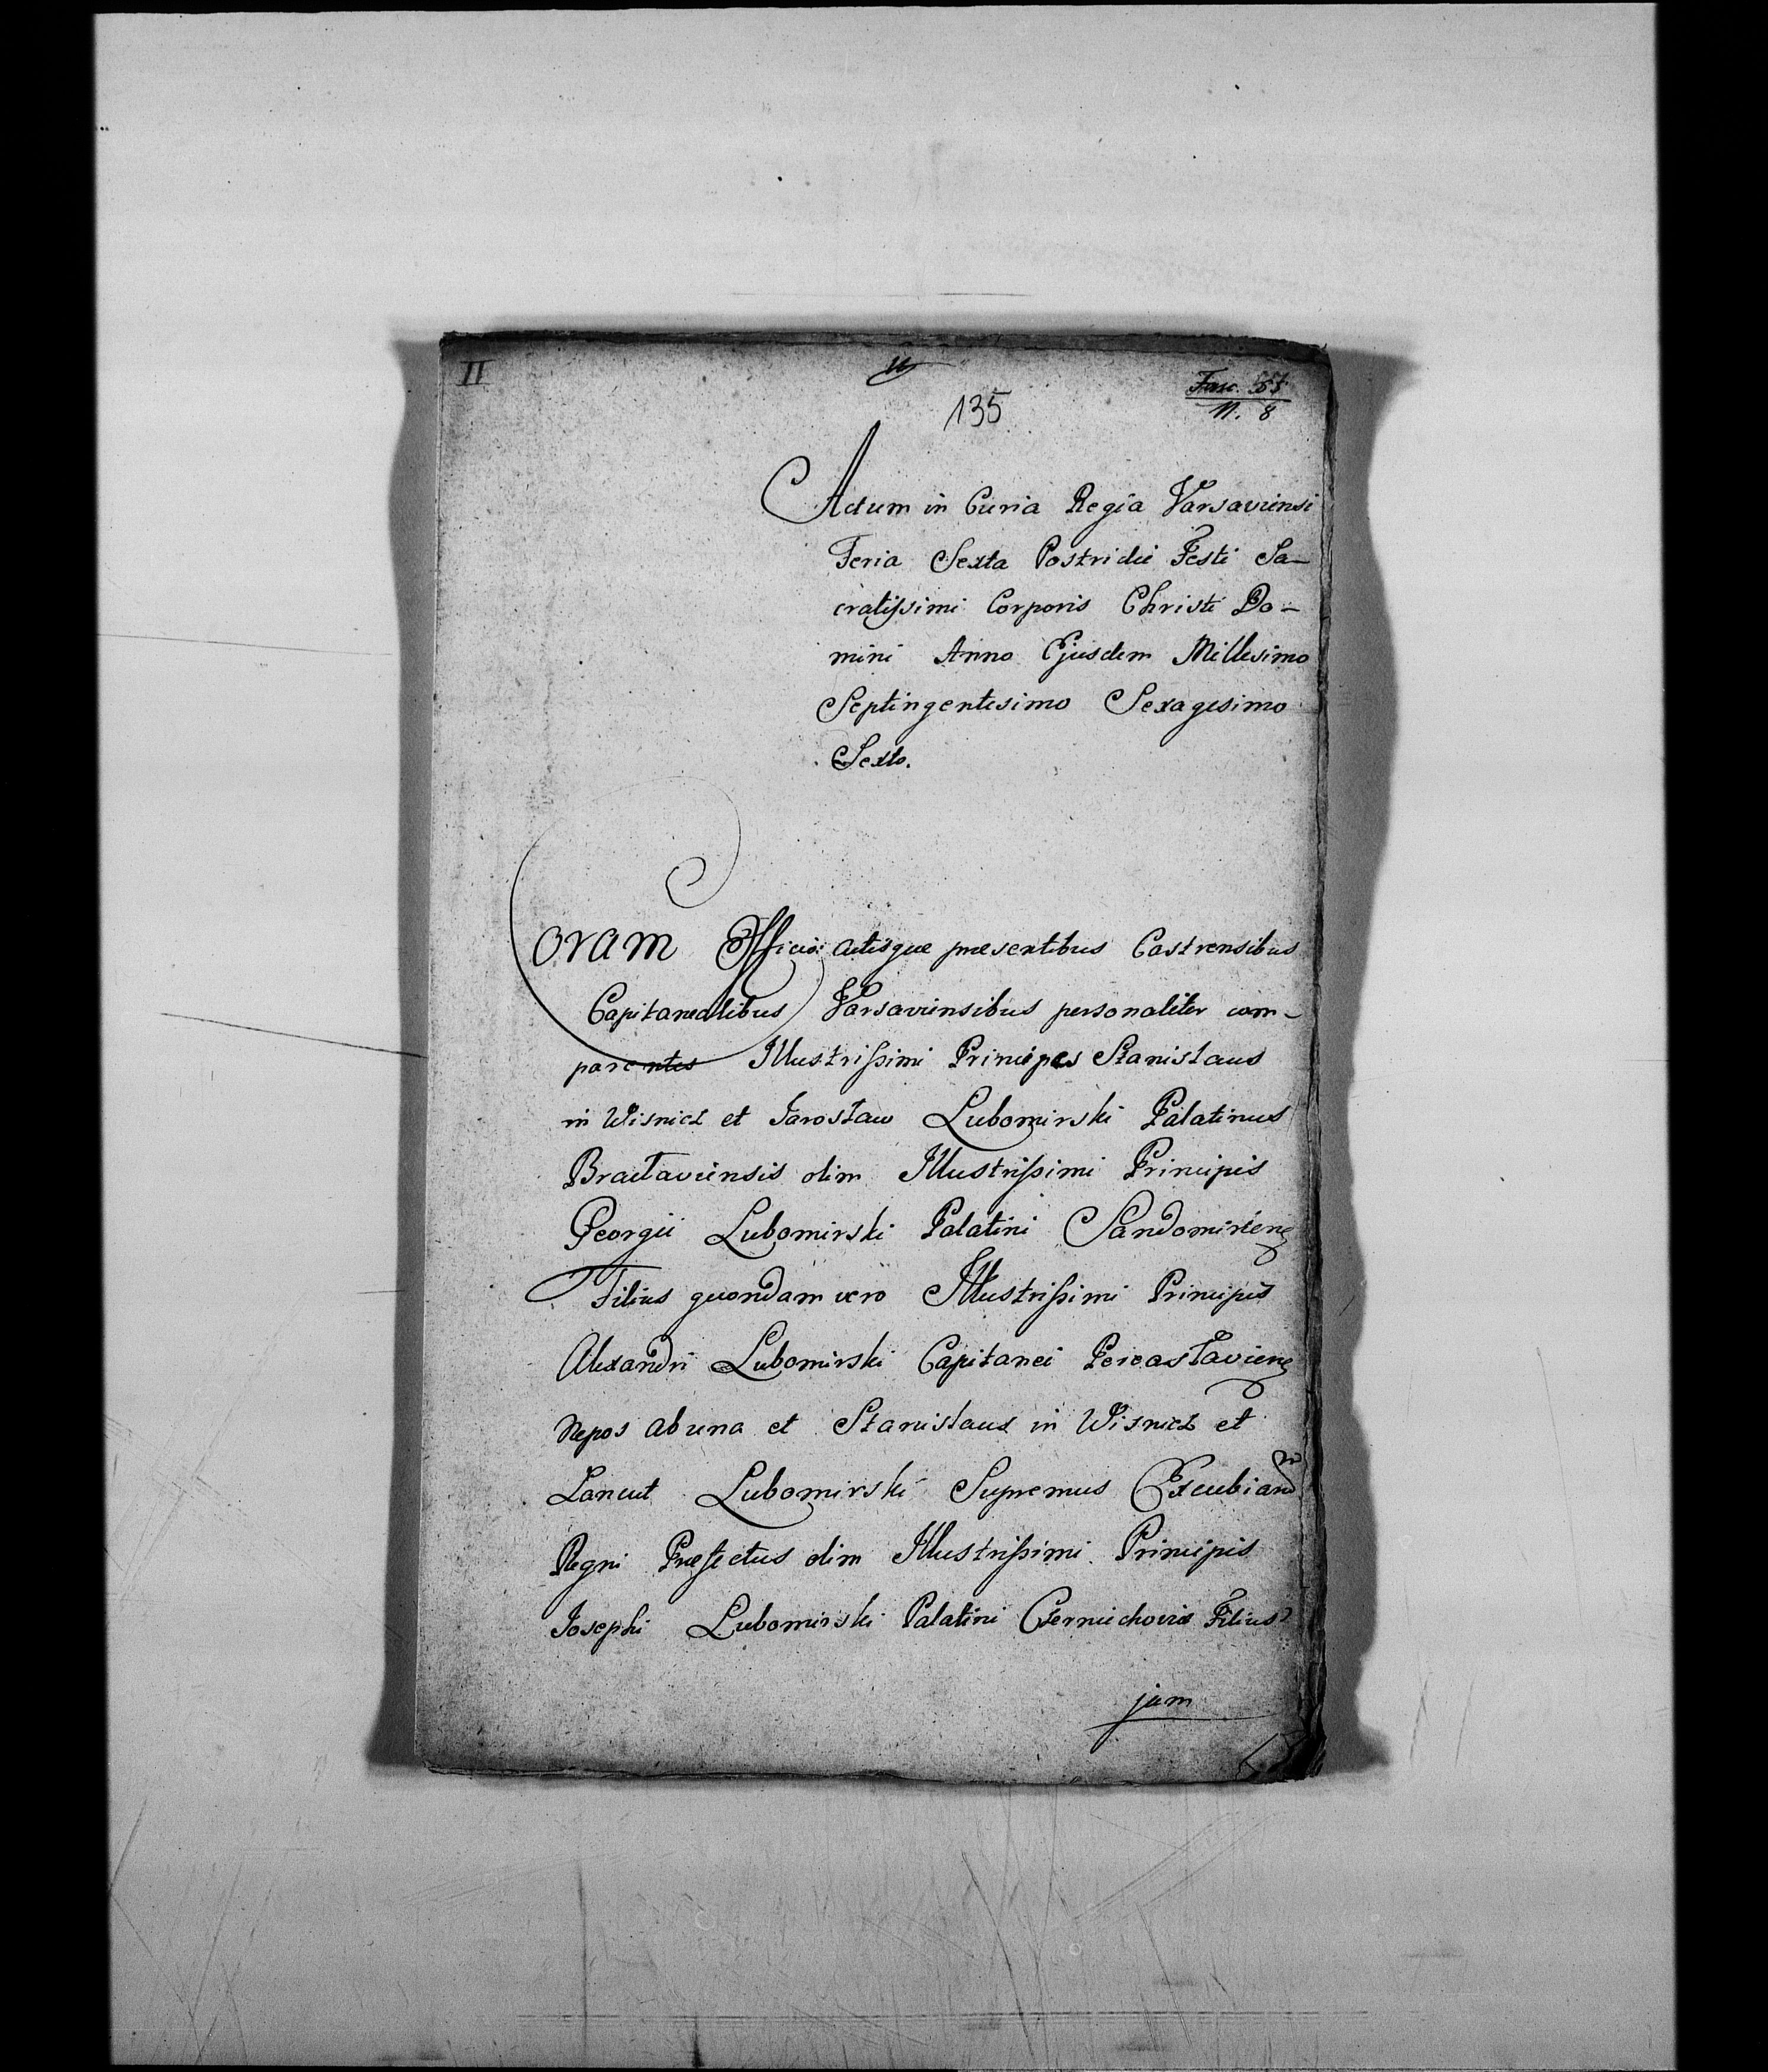 II
135
Fasc.
N. 8
Actum in Curia Regia Varsaviensi
Feria Sexta Postridie Festi Sa-
cratissimi Corporis Christi Do-
mini Anno Ejusdem Millesimo
Septingentesimo Sexagesimo
Sexto.
Coram Officio: actisque praesentibus Castrensibus
Capitanealibus Varsaviensibus personaliter com-
parentes Illustrissimi Principes Stanislaus
in Wisnicz et Jarosław Lubomirski Palatinus
Bracłaviensis olim Illustrissimi Principis
Georgii Lubomirski Palatini Sandomirien
Filius quondam vero Illustrissimi Principis
Alexandri Lubomirski Capitanei Pereasłavien
Nepos ab una et Stanislaus in Wisnicz et
Lancut Lubomirski Supremus Excubiarū
Regni Praefectus olim Illustrissimi Principis
Josephi Lubomirski Palatini Czerniechovia Filius
jam